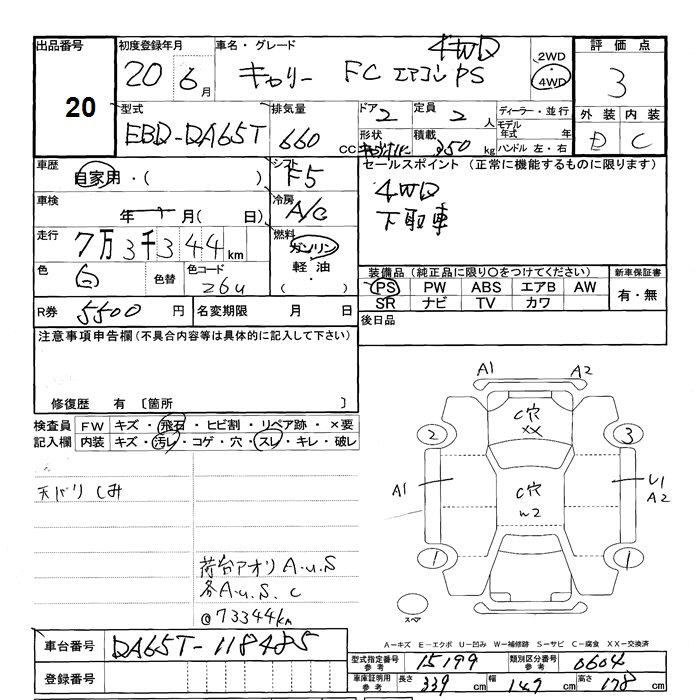 出品番号
20
初度登録年月
20 6月
車名・グレード
キャリー FC エアコン PS
4WD
2WD
・
4WD
評価点
3
外装 内装
E C
型式
EBD-DA65T
排気量
660
CC
ドア
2
定員
2人
形状
積載
350kg
ディーラー・並行
モデル
年式 年
ハンドル 左・右
車歴
自家用・( )
シフト
F5
セールスポイント (正常に機能するものに限ります)
4WD
下取車
車検
年 月( 日)
冷房
A/C
走行
7万3千344km
燃料
ガソリン
軽油
・
( )
色
白
色替
色コード
26U
装備品 (純正品に限り○をつけてください)
新車保証書
PS PW ABS エアB AW
SR ナビ TV カワ
有・無
R券
5500円
名変期限 月 日
後日品
注意事項申告欄(不具合内容等は具体的に記入して下さい)
修復歴 有 〔箇所 〕
検査員
記入欄
FW キズ・飛石・ヒビ割・リペア跡・×要
内装 キズ・汚レ・コゲ・穴・スレ・キレ・破レ
天バリ しみ
荷台アオリ A.u.S
各A.u.S.C
@73344km
A1 A2
C穴
XX
2 3
A1
C穴
W2
U1
A2
1 1
スペア
A-キズ E-エクボ U-凹み W-補修跡 S-サビ C-腐食 XX-交換済
車台番号
DA65T-118485
登録番号
型式指定番号
参考
15199
類別区分番号
参考
0604
車庫証明用
参考
長さ
339cm
幅
147cm
高さ
178cm